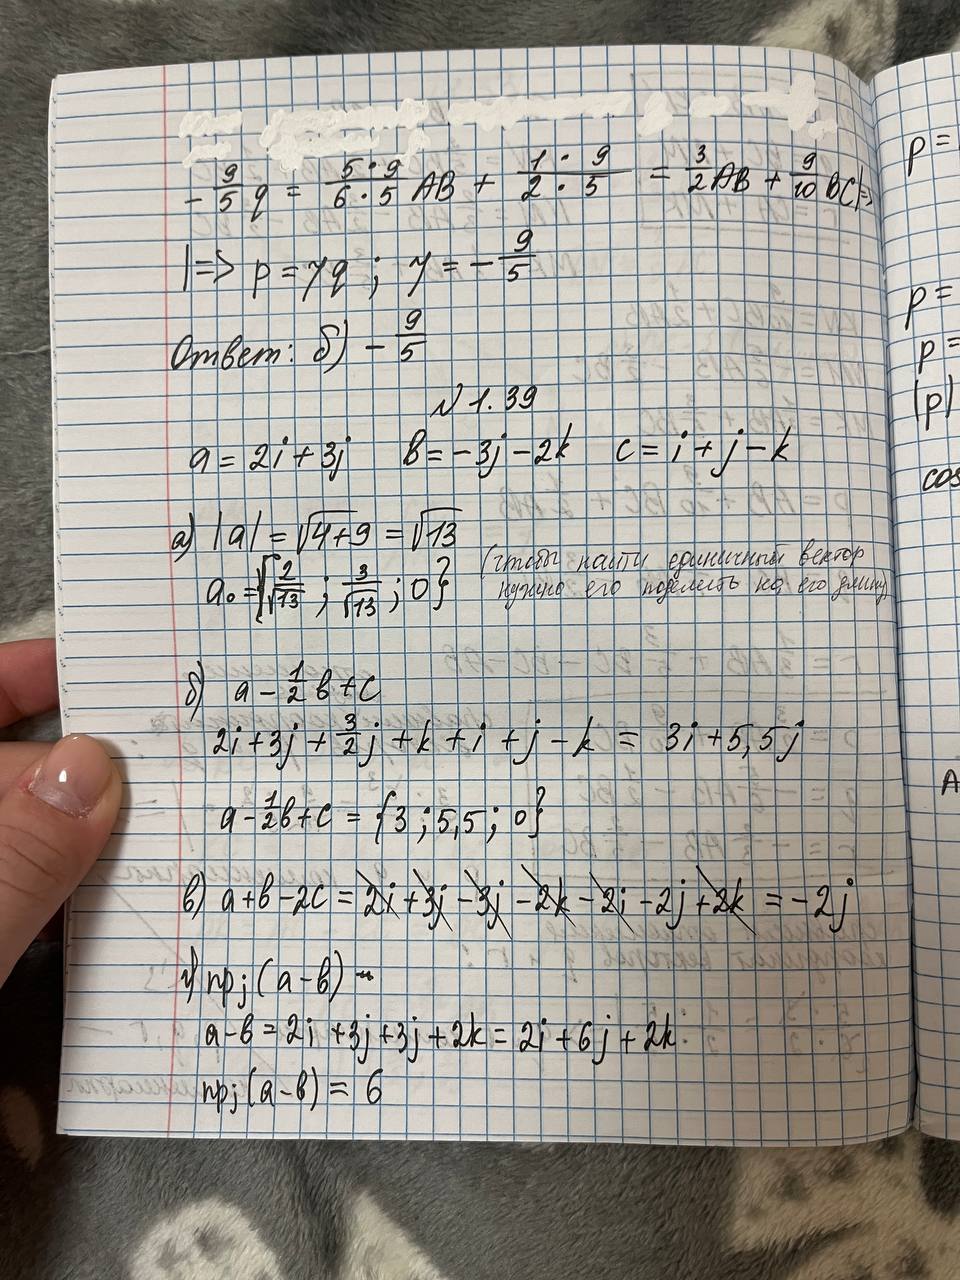 - 9/5 q = 5·9/6·5 AB + 1·9/2·5 = 3/2 AB + 9/10 BC |=>
|=> p = γq ; γ = - 9/5
Ответ: б) - 9/5
№1.39
a = 2i + 3j b = -3j - 2k c = i + j - k
а) |a| = √4+9 = √13
(чтобы найти единичный вектор
нужно его поделить на его длину
a₀ = {2/√13 ; 3/√13 ; 0}
б) a - 1/2 b + c
2i + 3j + 3/2 j + k + i + j - k = 3i + 5,5j
a - 1/2 b + c = {3 ; 5,5 ; 0}
в) a + b - 2c = 2i + 3j - 3j - 2k - 2i - 2j + 2k = -2j
г) прj (a - b) -
a - b = 2i + 3j + 3j + 2k = 2i + 6j + 2k
прj (a - b) = 6
p =
p =
p =
|p|
cos
A